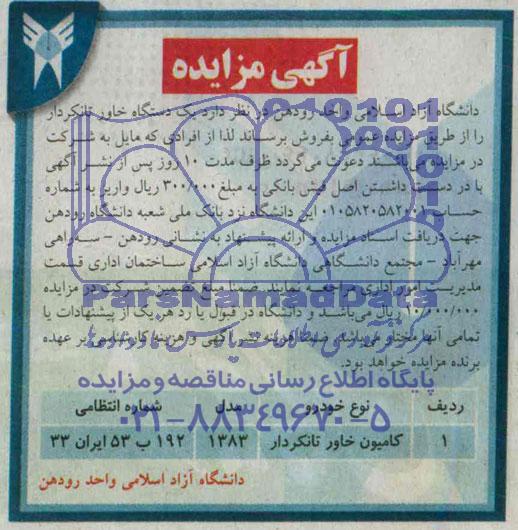 آگهی مزایده
دانشگاه آزاد اسلامی واحد رودهن در نظر دارد یک دستگاه خاور تانکردار
را از طریق مزایده عمومی بفروش برساند لذا از افرادی که مایل به شرکت
در مزایده می‌باشند دعوت می‌گردد ظرف مدت ۱۰ روز پس از نشر آگهی
با در دست داشتن اصل فیش بانکی به مبلغ ۳۰۰/۰۰۰ ریال واریز به شماره
حساب ۰۱۰۵۸۲۰۵۸۲۰۰۱ این دانشگاه نزد بانک ملی شعبه دانشگاه رودهن
جهت دریافت اسناد مزایده و ارائه پیشنهاد به نشانی رودهن - سه‌راهی
مهرآباد - مجتمع دانشگاهی دانشگاه آزاد اسلامی ساختمان اداری قسمت
مدیریت امور اداری مراجعه نمایند. ضمنا مبلغ تضمین شرکت در مزایده
۱۰/۰۰۰/۰۰۰ ریال می‌باشد و دانشگاه در قبول یا رد هر یک از پیشنهادات یا
تمامی آنها مختار می‌باشد. ضمنا هزینه نشر آگهی و هزینه کارشناسی بر عهده
برنده مزایده خواهد بود.
ParsNamadData
پایگاه اطلاع رسانی مناقصه و مزایده
۰۲۱-۸۸۳۴۹۶۷۰-۵
ردیف نوع خودرو مدل شماره انتظامی
۱ کامیون خاور تانکردار ۱۳۸۳ ۱۹۲ ب ۵۳ ایران ۳۳
دانشگاه آزاد اسلامی واحد رودهن